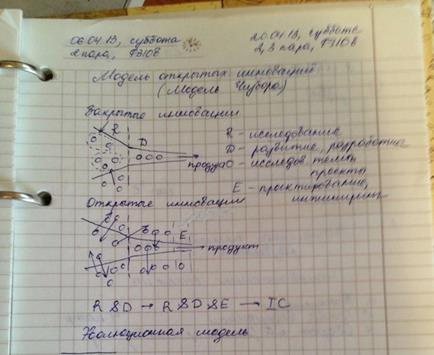 06.04.13, суббота
2 пара, Г3108
20.04.13, суббота
2,3 пара, Г3108
Модель открытых инноваций
(Модель Чесборо)
Закрытые инновации
R D
R - исследование
D - развитие, разработки
O - исследов. темы, проекты
продукт
E - проектирование, инжиниринг
Открытые инновации
E
продукт
R&D → R&D&E → IC
Эволюционная модель